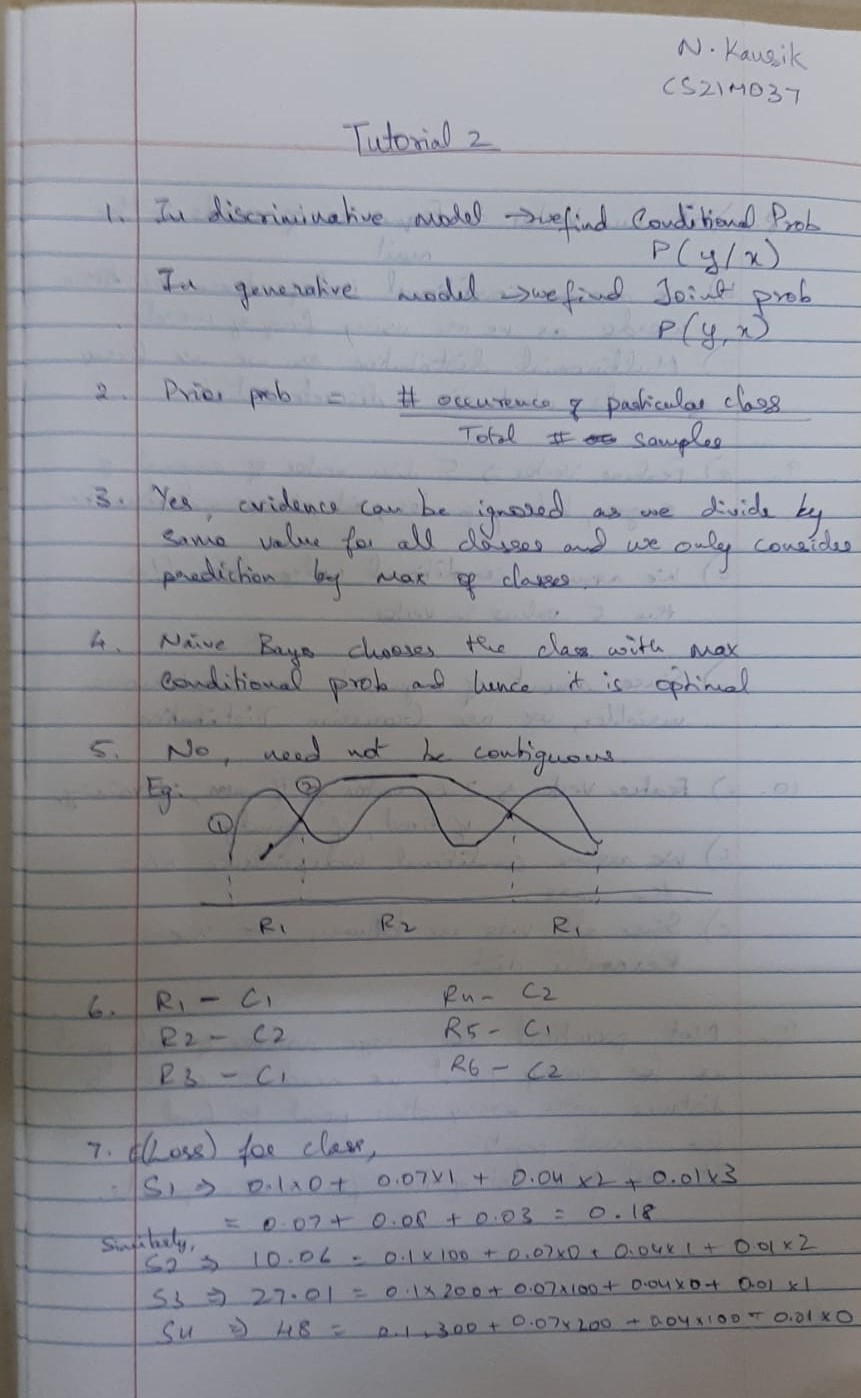 N. Kausik
CS21M037
Tutorial 2
1. In discriminative model → we find Conditional Prob
P(y/x)
In generative model → we find Joint prob
P(y, x)
2. Prior prob = # occurence of particular class
Total # samples
3. Yes, evidence can be ignored as we divide by
same value for all classes and we only consider
prediction by max of classes.
4. Naive Bayes chooses the class with max
Conditional prob and hence it is optimal
5. No, need not be contiguous
Eg:
① ②
R1 R2 R1
6. R1 - C1 R4 - C2
R2 - C2 R5 - C1
R3 - C1 R6 - C2
7. E(Loss) for class,
S1 ⇒ 0.1x0 + 0.07x1 + 0.04x2 + 0.01x3
= 0.07 + 0.08 + 0.03 = 0.18
Similarly,
S2 ⇒ 10.06 = 0.1x100 + 0.07x0 + 0.04x1 + 0.01x2
S3 ⇒ 27.01 = 0.1x200 + 0.07x100 + 0.04x0 + 0.01x1
S4 ⇒ 48 = 0.1x300 + 0.07x200 + 0.04x100 + 0.01x0